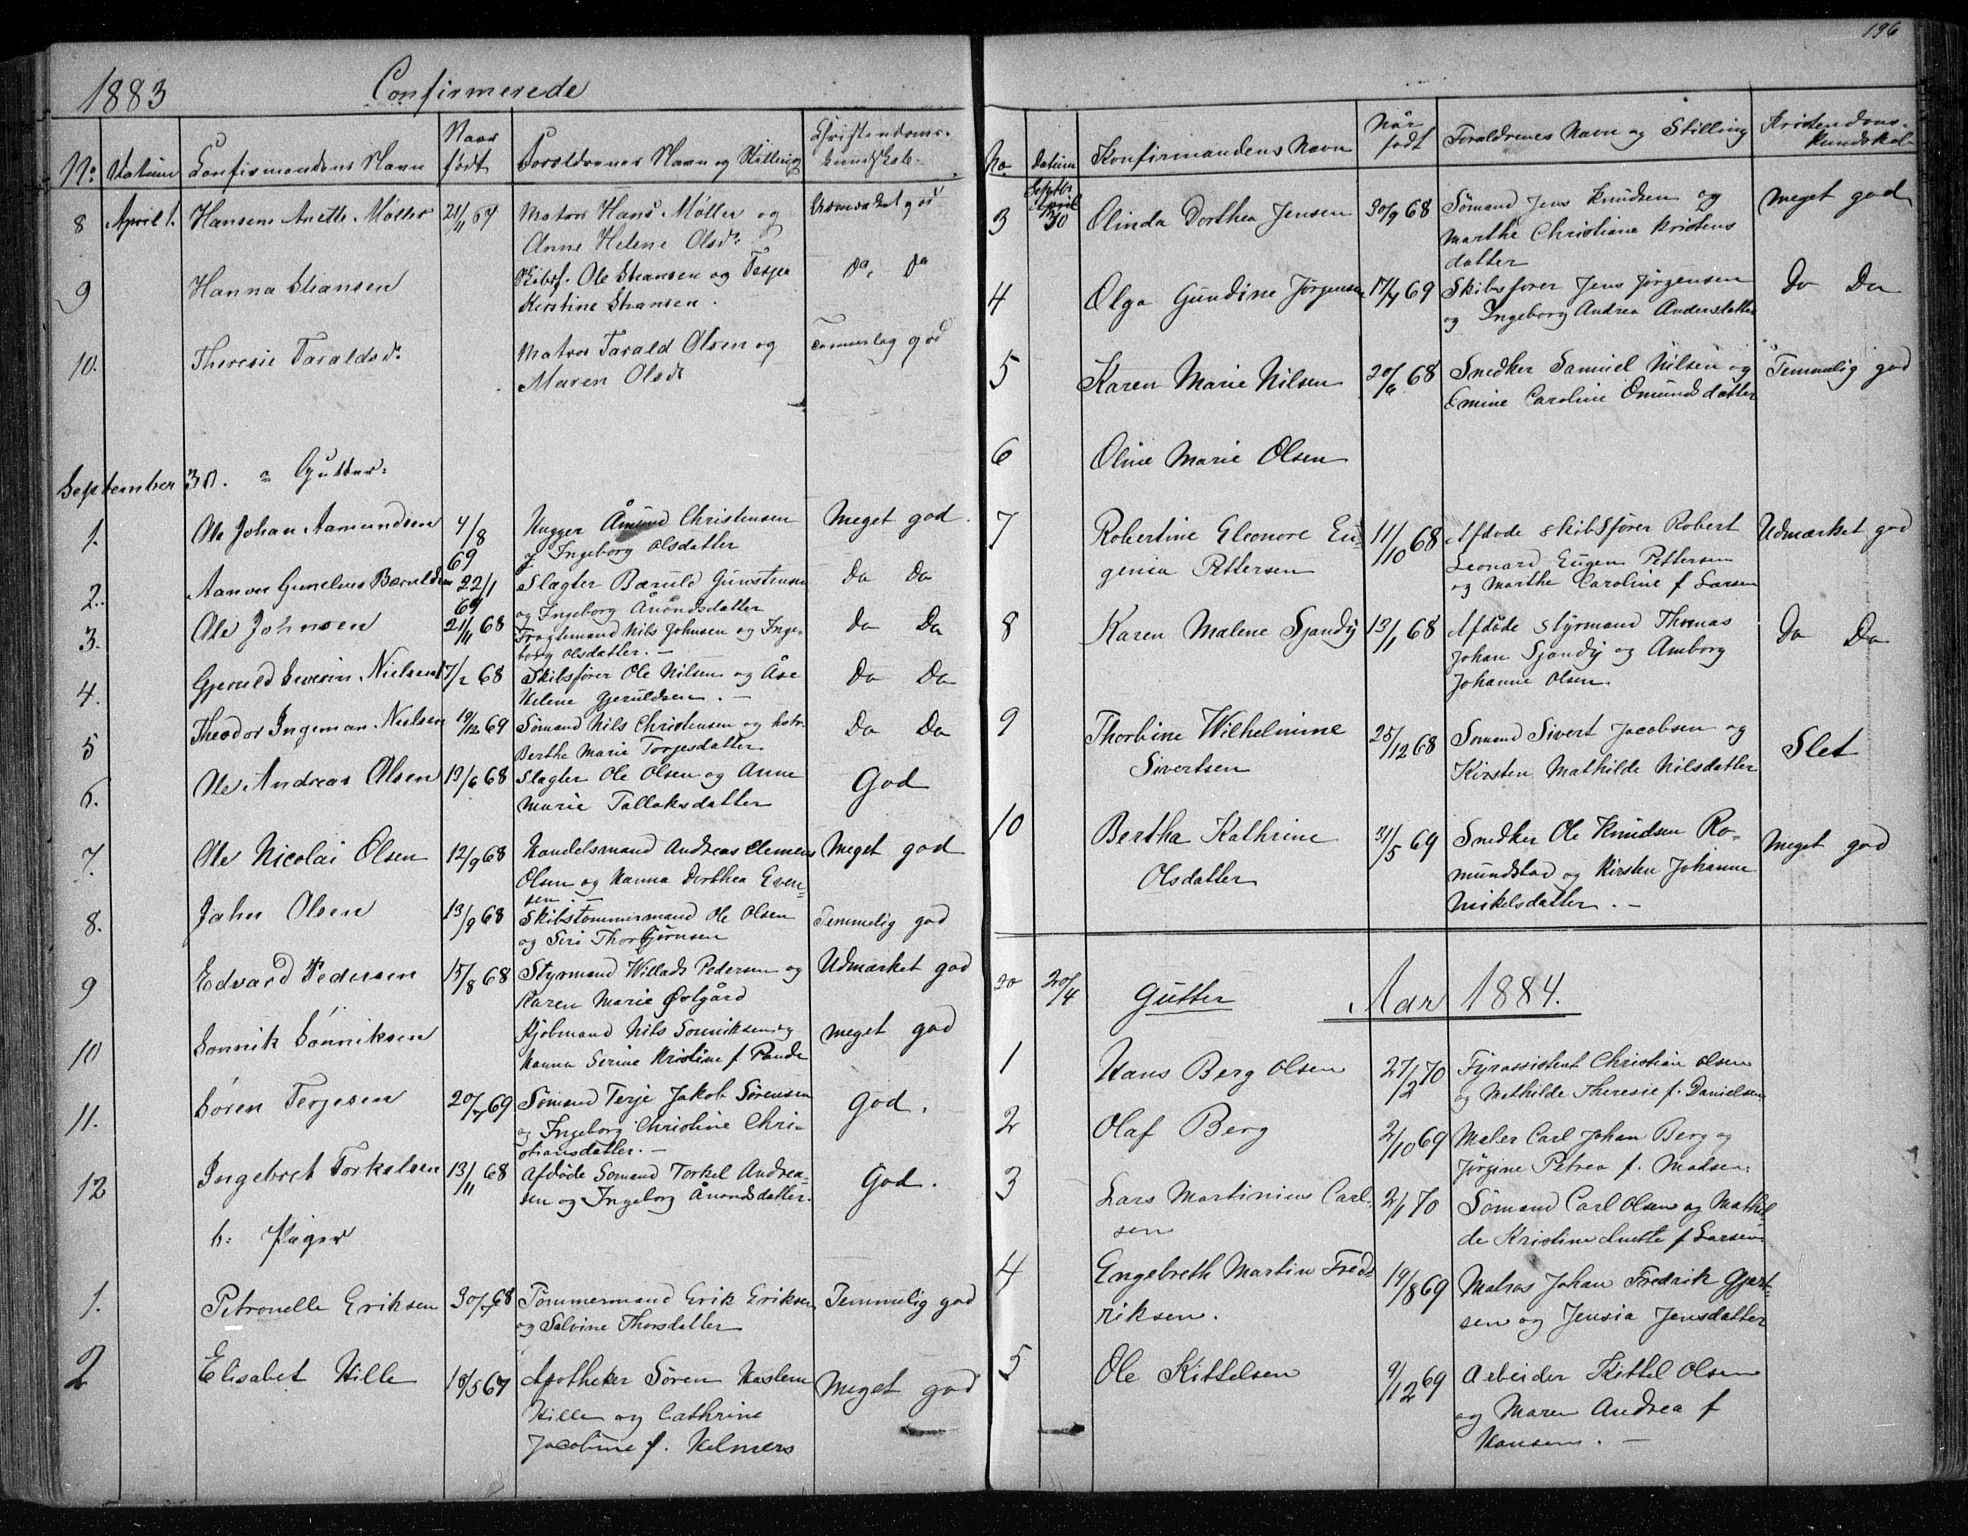 1883 Confirmerede
No: Datum Confirmandens Navn Naar født Forældrenes Navn og Stilling Christendoms-kundskab.
8 April 1. Hansen Anette Møller 21/11 67 Matros Hans Møller og Udmærket god
Anne Helene Olsdr.
9 Hanna Stiansen Skibsf. Ole Stiansen og Terjea Do. Do
Kirstine Stiansen.
10. Theresie Taraldsdr. Matros Tarald Olsen og Temmelig god
Maren Olsdr
September 30. a Gutter:
1. Ole Johan Aamundsen 4/8 69 Hugger Åmund Christensen Meget god.
Ingeborg Olsdatter
2. Aanon Gunelius Bæruldsen 22/1 69 Slagter Bæruld Gunstensen Do Do
og Ingeborg Ånondsdatter
3. Ole Johnsen 21/11 68 Fragtemand Nils Johnsen og Inge- Do Do
borg Olsdatter. —
4. Gjeruld Severin Nielsen 17/2 68 Skibsfører Ole Nilsen og Åse Do Do
Helene Gjeruldsen. —
5 Theodor Ingeman Nielsen 19/12 69 Sømand Nils Christensen og hstr. Do Do
Berthe Marie Torgesdatter
6. Ole Andreas Olsen 19/6 68 Slagter Ole Olsen og Anne God
Marie Tallaksdatter
7. Ole Nicolai Olsen 12/9 68 Handelsmand Andreas Clemens Meget god
Olsen og Hanna Dorthea Even-
sen. —
8. John Olsen 13/9 68 Skibstømmermand Ole Olsen Temmelig god
og Siri Thorbjørnsen
9 Edvard Pedersen 15/8 68 Styrmand Willads Pedersen og Udmærket god
Karen Marie Østgård
10 Sonnik Sönniksen Kjøbmand Nils Sonniksen og meget god
Hanna Serine Kristine f Pande
11. Sören Terjesen 20/7 69 Sömand Terje Jakob Sörensen God.
og Ingeborg Christine Chri-
stiansdatter. —
12 Ingebret Torkelsen 13/11 68 Afdöde Somand Torkel Andrea- God.
sen og Ingeborg Ånondsdatter.
b: Piger
1. Petronelle Eriksen 30/7 68 Tømmermand Erik Eriksen Temmelig god
og Salvine Thorsdatter
2 Elisabet Hille 18/5 67 Apotheker Sören Haslem Meget god
Hille og Cathrine
Jacobine f. Helmers
196
No datum Konfirmandens Navn Når født Forældrenes Navn og Stilling Kristendoms-kundskab
3 Septbr April 30 Olinda Dorthea Jensen 30/9 68 Sömand Jens Knudsen og meget god
Marthe Christiane Kristens
datter
4 Olga Gundine Jørgensen 17/4 69 Skibsfører Jens Jørgensen Do Do
og Ingeborg Andrea Andersdatter
5 Karen Marie Nilsen 20/6 68 Snedker Samuel Nilsen og Temmelig god
Emine Caroline Omundsdatter
6 Oline Marie Olsen
7 Robertine Eleonore Eu- 11/10 68 Afdøde skibsfører Robert Udmærket god
genia Pettersen Leonard Eugen Pettersen
og Marthe Caroline f Larsen
8 Karen Malene Sjandy 13/1 68 Afdøde Styrmand Thomas Do Do
Johan Sjandy og Amborg
Johanne Olsen.
9 Thorbine Wilhelmine 25/12 68 Sømand Sivert Jacobsen og Slet
Sivertsen Kirsten Mathilde Nilsdatter
10 Bertha Kathrine 31/5 69 Snedker Ole Knudsen Ro- meget god
Olsdatter mundstad og Kirsten Johanne
Mikelsdatter. —
20 20/4 Gutter Aar 1884.
1 Hans Berg Olsen 27/2 70 Fyrassistent Christian Olsen
og Mathilde Theresie f. Danielsen
2 Olaf Berg 2/10 69 Maler Carl Johan Berg og
Jörgine Petrea f. Madsen.
3 Lars Martinius Carl- 2/1 70 Sömand Carl Olsen og Mathil
sen de Kristine Anette f Larsen.
4 Engebreth Martin Fred- 19/8 69 Matros Johan Fredrik Gjert-
riksen. sen og Jensia Jensdatter
5 Ole Kittelsen 9/12 69 Arbeider Kittel Olsen
og Maren Andrea f
Hansen. —